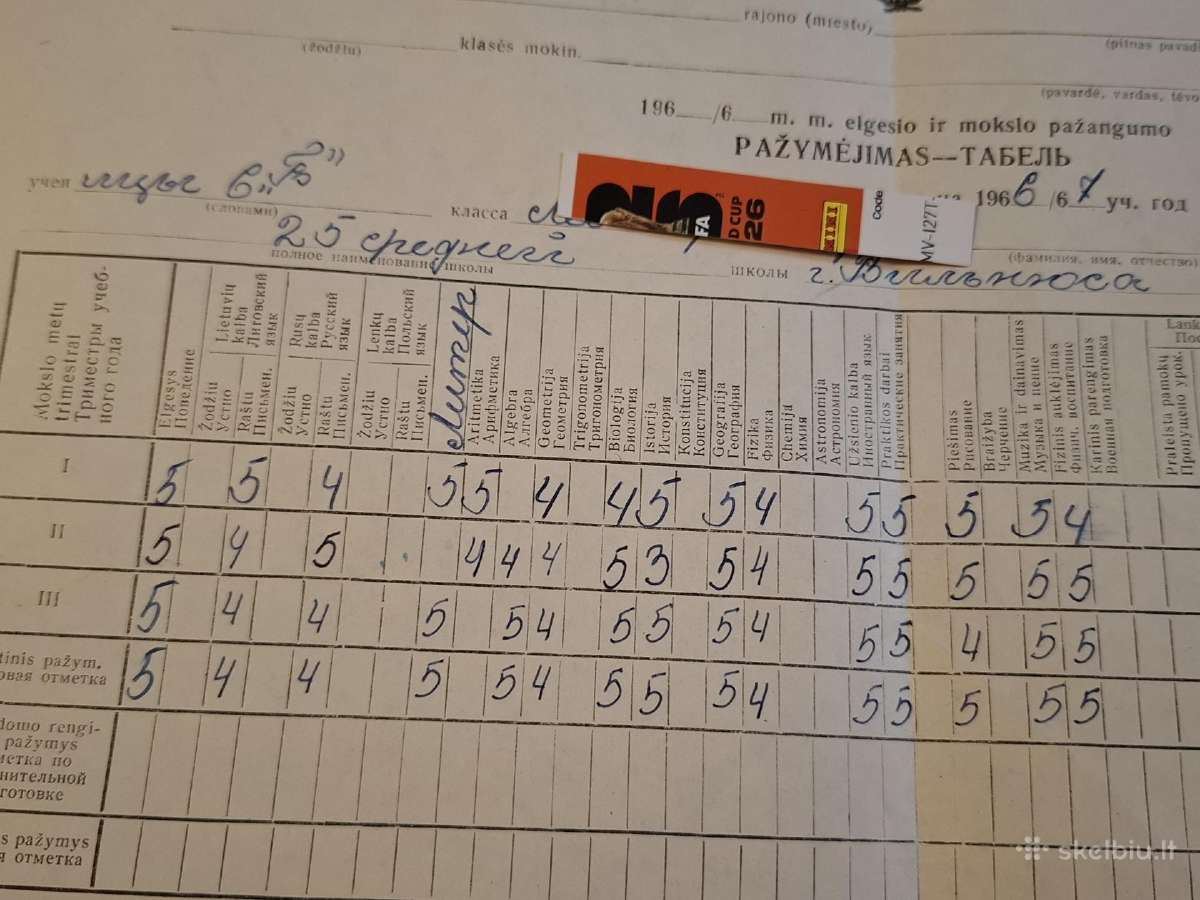 rajono (miesto)
(žodžiu)
klasės mokin.
(pilnas pavad
(pavardė, vardas, tėvo
196 /6 m. m. elgesio ir mokslo pažangumo
PAŽYMĖJIMAS—ТАБЕЛЬ
учен ицы 6 „Б”
(словами)
класса
FA
D CUP
26
PANINI
Code
MV-I27T
196 6 /6 7 уч. год
25 средней
полное наименование школы
школы
г. Вильнюса
(фамилия, имя, отчество)
Mokslo metų trimestrai
Триместры учебного года
Elgesys
Поведение
Lietuvių kalba
Литовский язык
Žodžiu
Устно
Raštu
Письмен.
Rusų kalba
Русский язык
Žodžiu
Устно
Raštu
Письмен.
Lenkų kalba
Польский язык
Žodžiu
Устно
Raštu
Письмен.
Литер
Aritmetika
Арифметика
Algebra
Алгебра
Geometrija
Геометрия
Trigonometrija
Тригонометрия
Biologija
Биология
Istorija
История
Konstitucija
Конституция
Geografija
География
Fizika
Физика
Chemija
Химия
Astronomija
Астрономия
Užsienio kalba
Иностранный язык
Praktikos darbai
Практические занятия
Piešimas
Рисование
Braižyba
Черчение
Muzika ir dainavimas
Музыка и пение
Fizinis auklėjimas
Физич. воспитание
Karinis parengimas
Военная подготовка
Lank
Пос
Praleista pamokų
Пропущено урок.
I 5 5 4 5 5 4 4 5 5 4 5 5 5 5 4
II 5 4 5 4 4 4 5 3 5 4 5 5 5 5 5
III 5 4 4 5 5 4 5 5 5 4 5 5 4 5 5
tinis pažym.
овая отметка 5 4 4 5 5 4 5 5 5 4 5 5 5 5 5
domo rengi-
pažymys
метка по
нительной
готовке
s pažymys
я отметка
skelbiu.lt